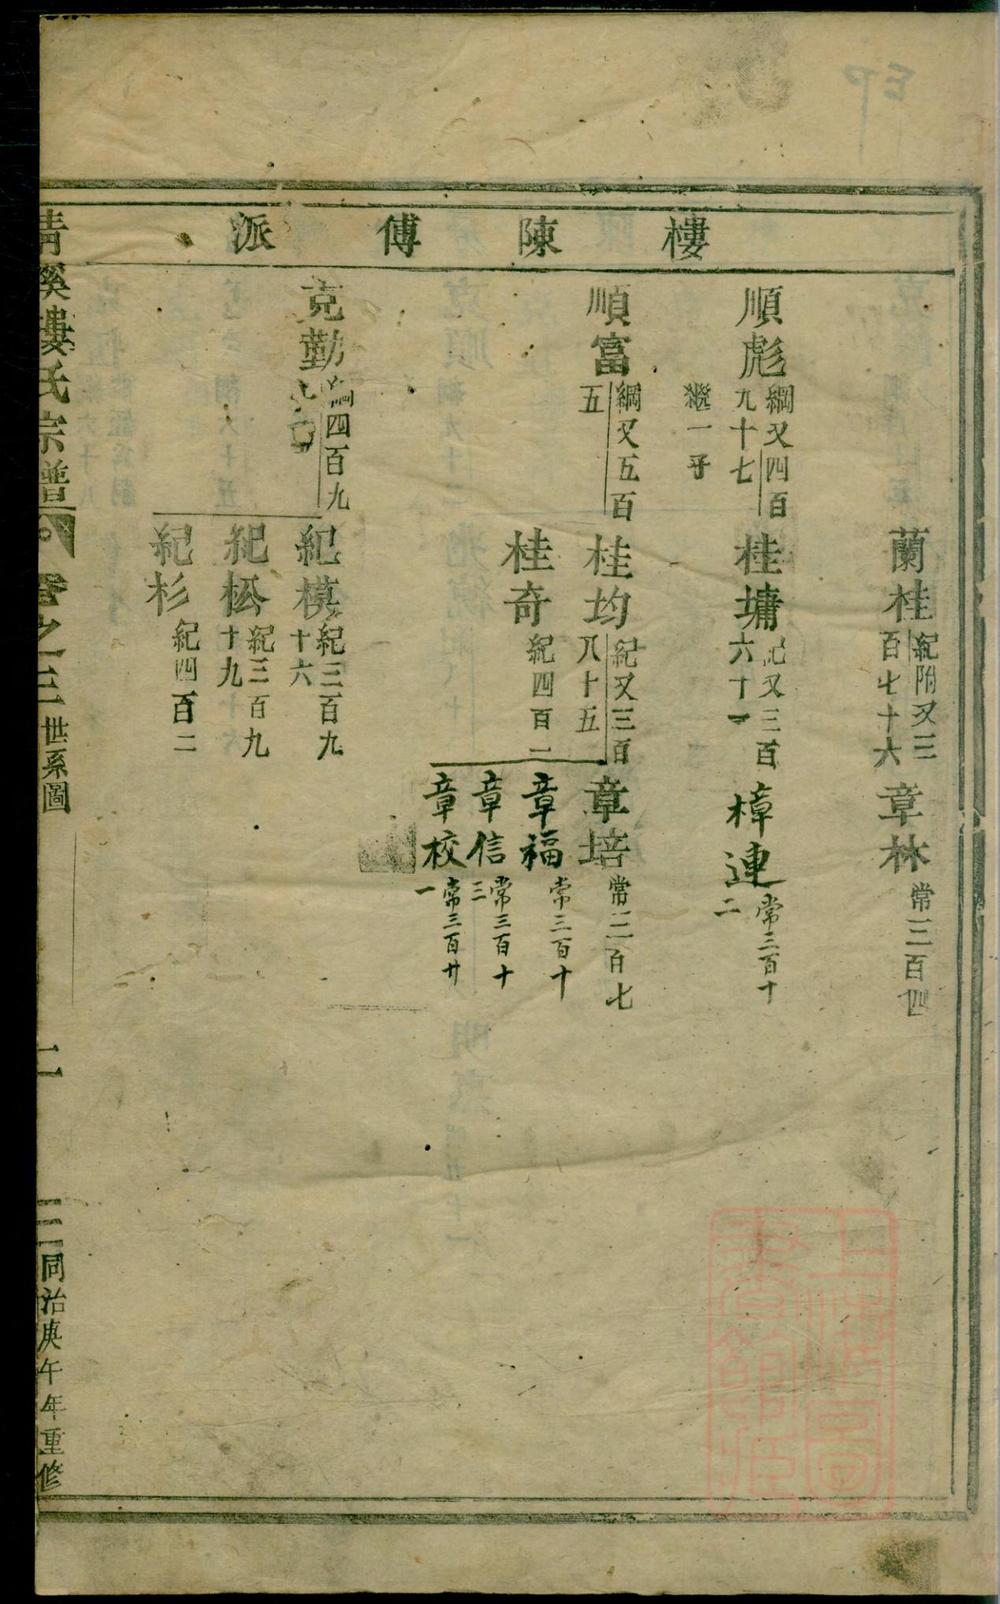 樓陳傅派
蘭桂
紀附又三
百七十六
章林
常三百四
順彪
綱又四百
九十七
繼一子
桂墉
紀又三百
六十一
樟連
常三百十
二
順富
綱又五百
五
桂均
紀又三百
八十五
章培
常三百七
章福
常三百十
章信
常三百十
三
章校
常三百廿
一
桂奇
紀四百一
克勤
綱四百九
紀模
紀三百九
十六
紀松
紀三百九
十九
紀杉
紀四百二
清溪樓氏宗譜
卷之三
世系圖
同治庚午年重修
上海圖
書館藏